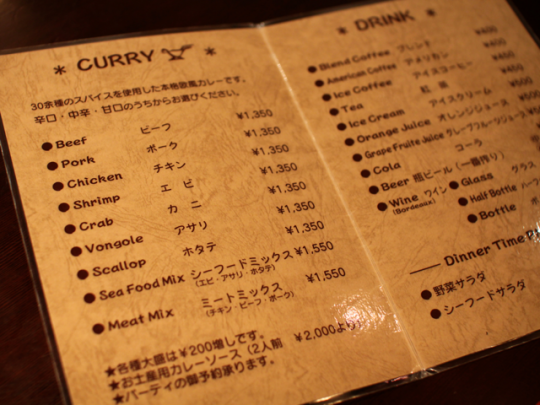 * CURRY *
30余種のスパイスを使用した本格欧風カレーです。
辛口・中辛・甘口のうちからお選びください。
●Beef ビーフ ¥1,350
●Pork ポーク ¥1,350
●Chicken チキン ¥1,350
●Shrimp エビ ¥1,350
●Crab カニ ¥1,350
●Vongole アサリ ¥1,350
●Scallop ホタテ ¥1,350
●Sea Food Mix シーフードミックス ¥1,550
(エビ・アサリ・ホタテ)
●Meat Mix ミートミックス ¥1,550
(チキン・ビーフ・ポーク)
★各種大盛は¥200増しです。
★お土産用カレーソース(2人前 ¥2,000より)
★パーティの御予約承ります。
* DRINK *
●Blend Coffee ブレンド
●American Coffee アメリカン
●Ice Coffee アイスコーヒー
●Tea 紅茶
●Ice Cream アイスクリーム
●Orange Juice オレンジジュース
●Grape Fruite Juice グレープフルーツジュース
●Cola コーラ
●Beer 瓶ビール(一番搾り)
●Wine ワイン ●Glass グラス
(Bordeaux) ●Half Bottle
●Bottle
Dinner Time
●野菜サラダ
●シーフードサラダ